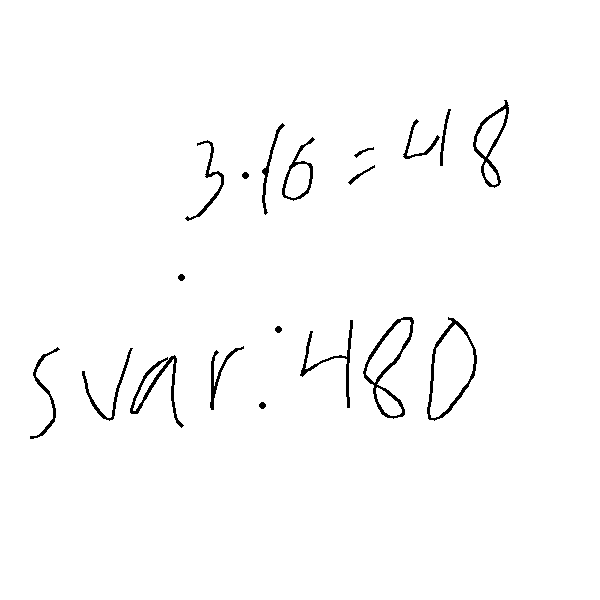 3·16=48
svar:480